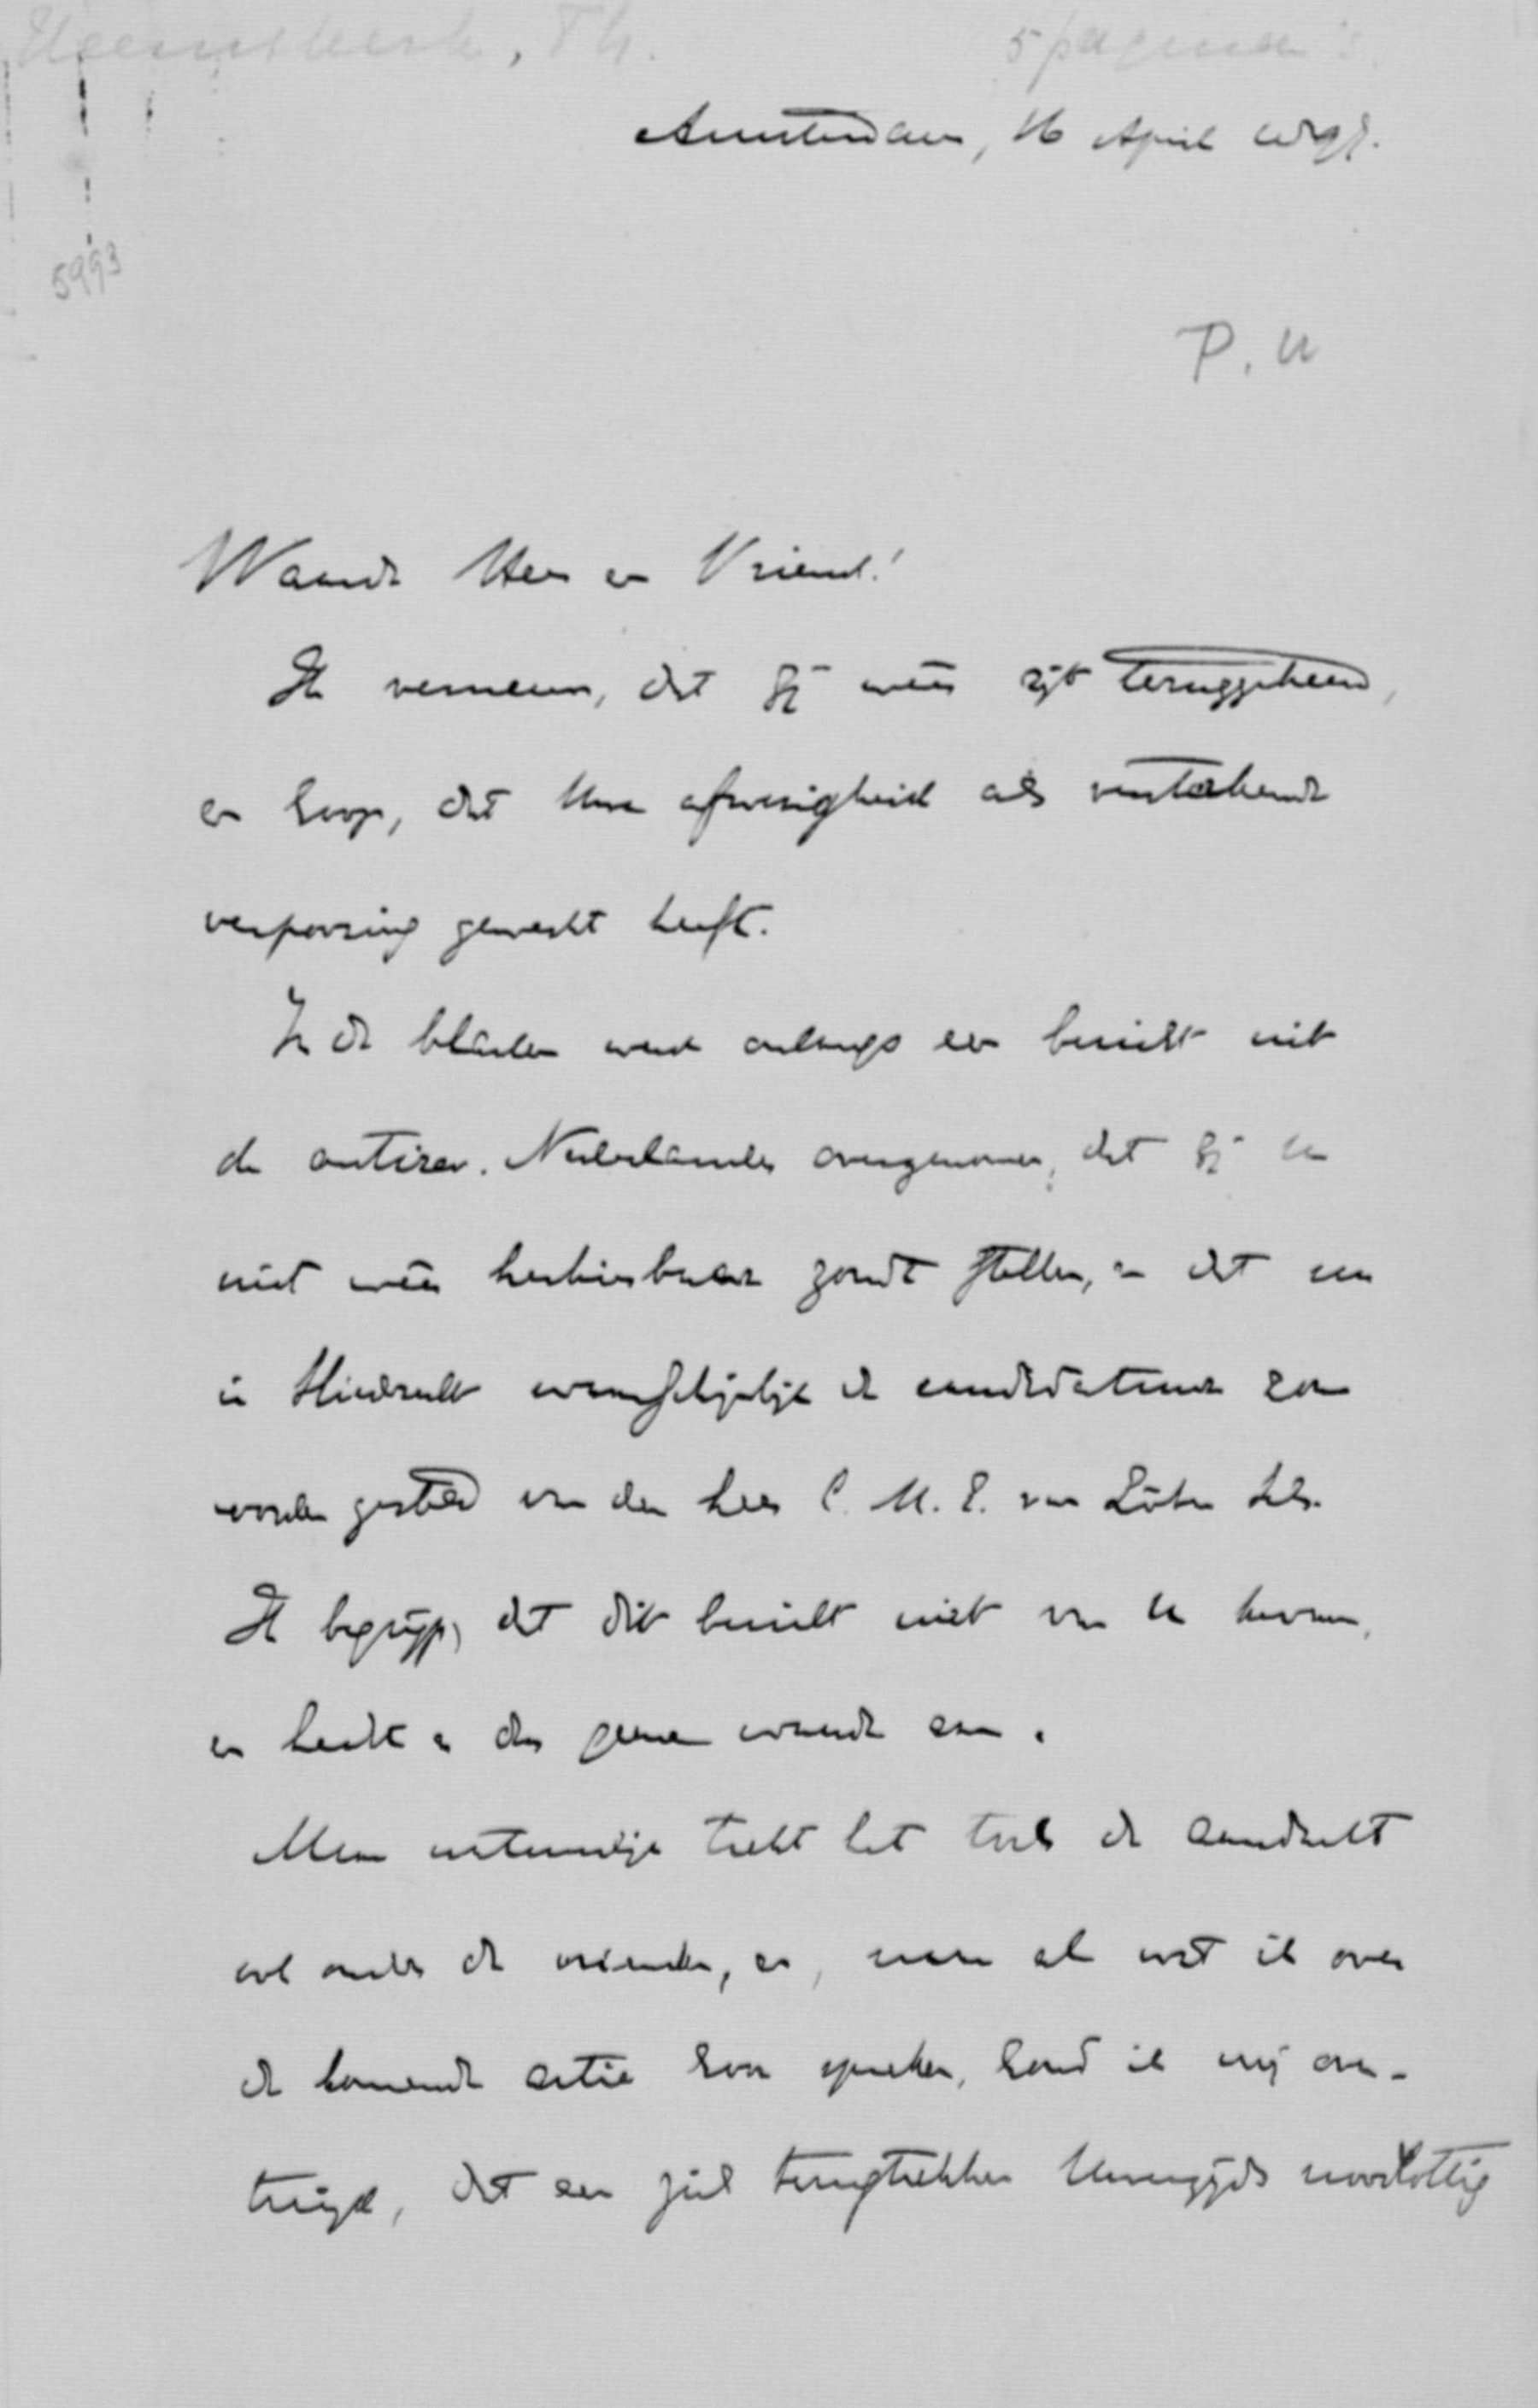 Heemskerk, Th.
5 pagina's
Amsterdam, 16 April 1897.
5993
P. U
Waarde Heer en Vriend!
Ik vernam, dat gij weer zijt teruggekeerd,
en hoop, dat Uwe afwezigheid als versterkende
verpoozing gewerkt heeft.
In de bladen werd onlangs een bericht uit
de antirev. Nederlander overgenomen, dat gij U
niet weer herkiesbaar zoudt stellen, en dat een
in Sliedrecht waarschijnlijk de candidatuur zou
worden gesteld van den heer C. M. E. van Löben Sels.
Ik begrijp, dat dit bericht niet van U kwam,
en hecht er dus geene waarde aan.
Maar natuurlijk trekt het toch de aandacht
ook onder de vrienden, en, waar al wat ik over
de komende actie hoor spreken, houd ik mij over-
tuigd, dat een zich terugtrekken Uwerzijds noodlottig